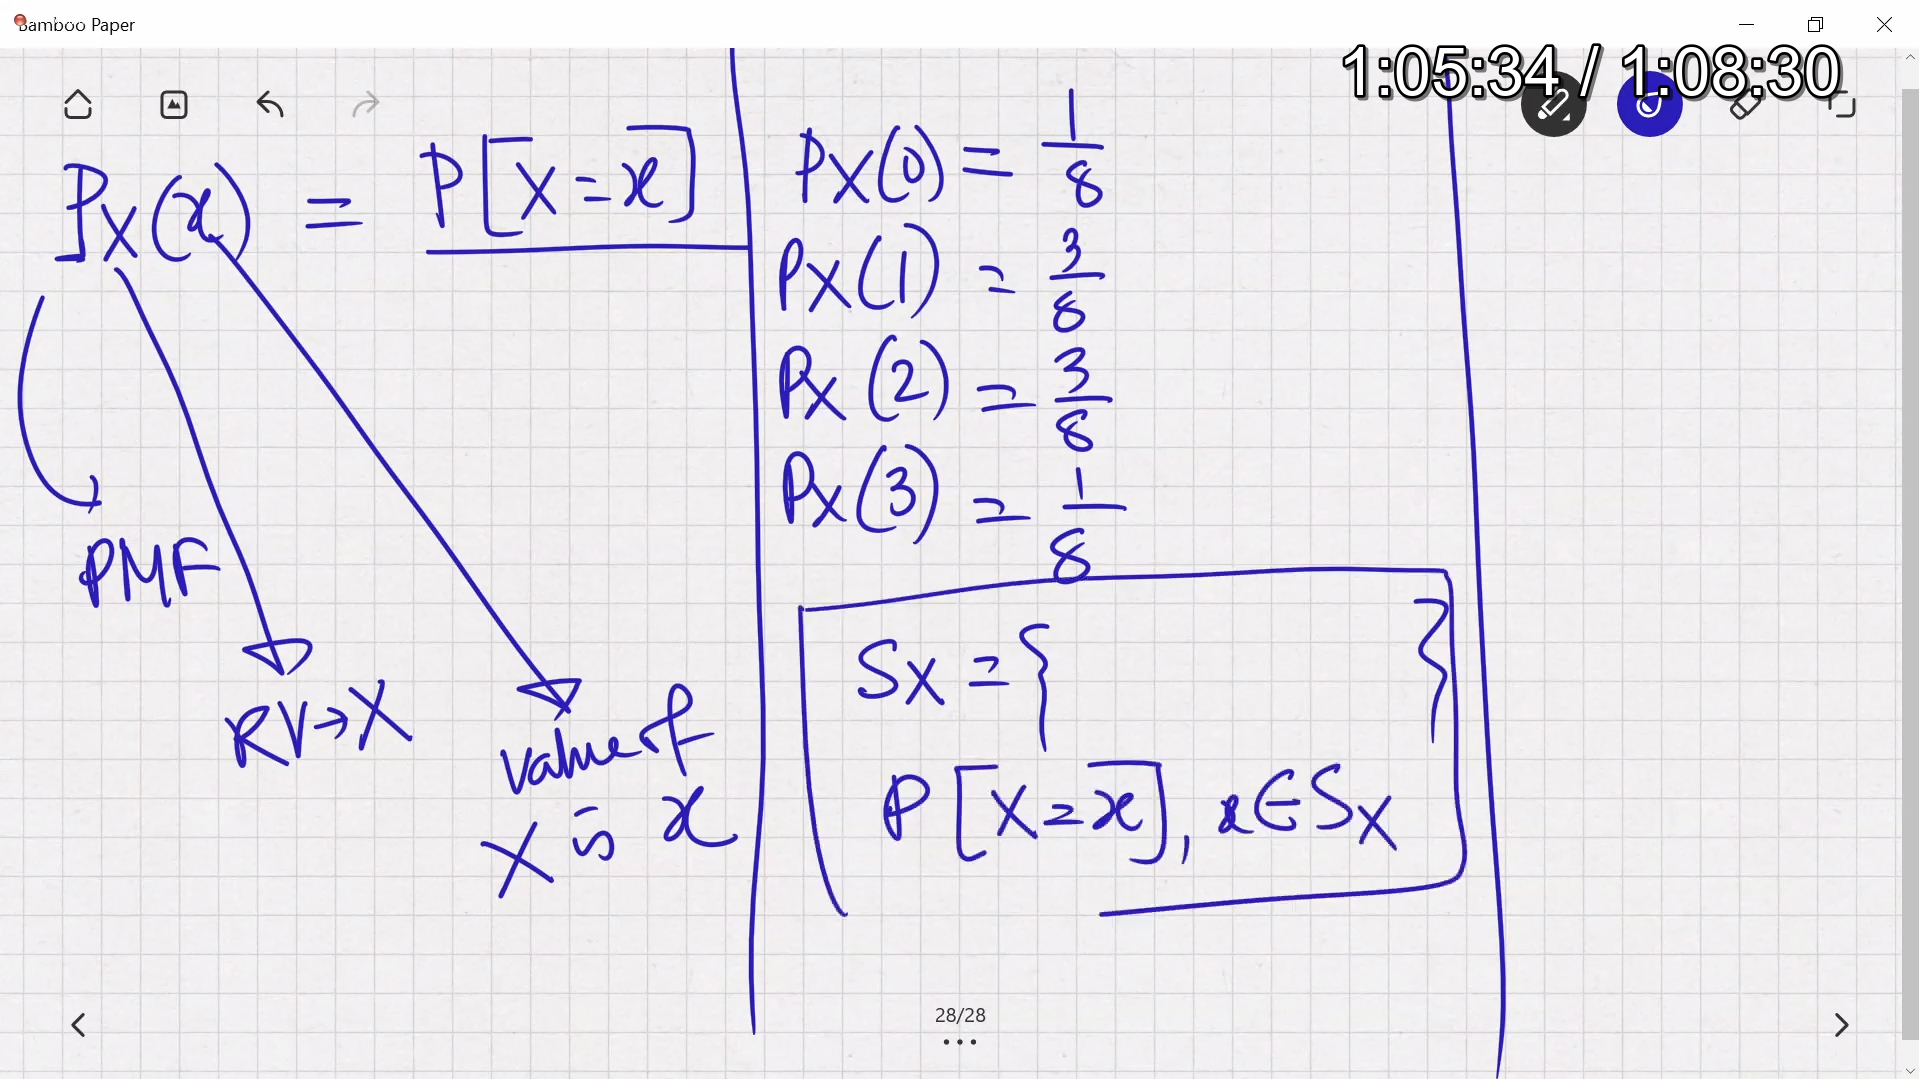 Bamboo Paper
1:05:34 / 1:08:30
P_X(x) = P[X=x]
PMF
RV→X
value of
X is x
P_X(0) = 1/8
P_X(1) = 3/8
P_X(2) = 3/8
P_X(3) = 1/8
S_X = { }
P[X=x], x∈S_X
28/28